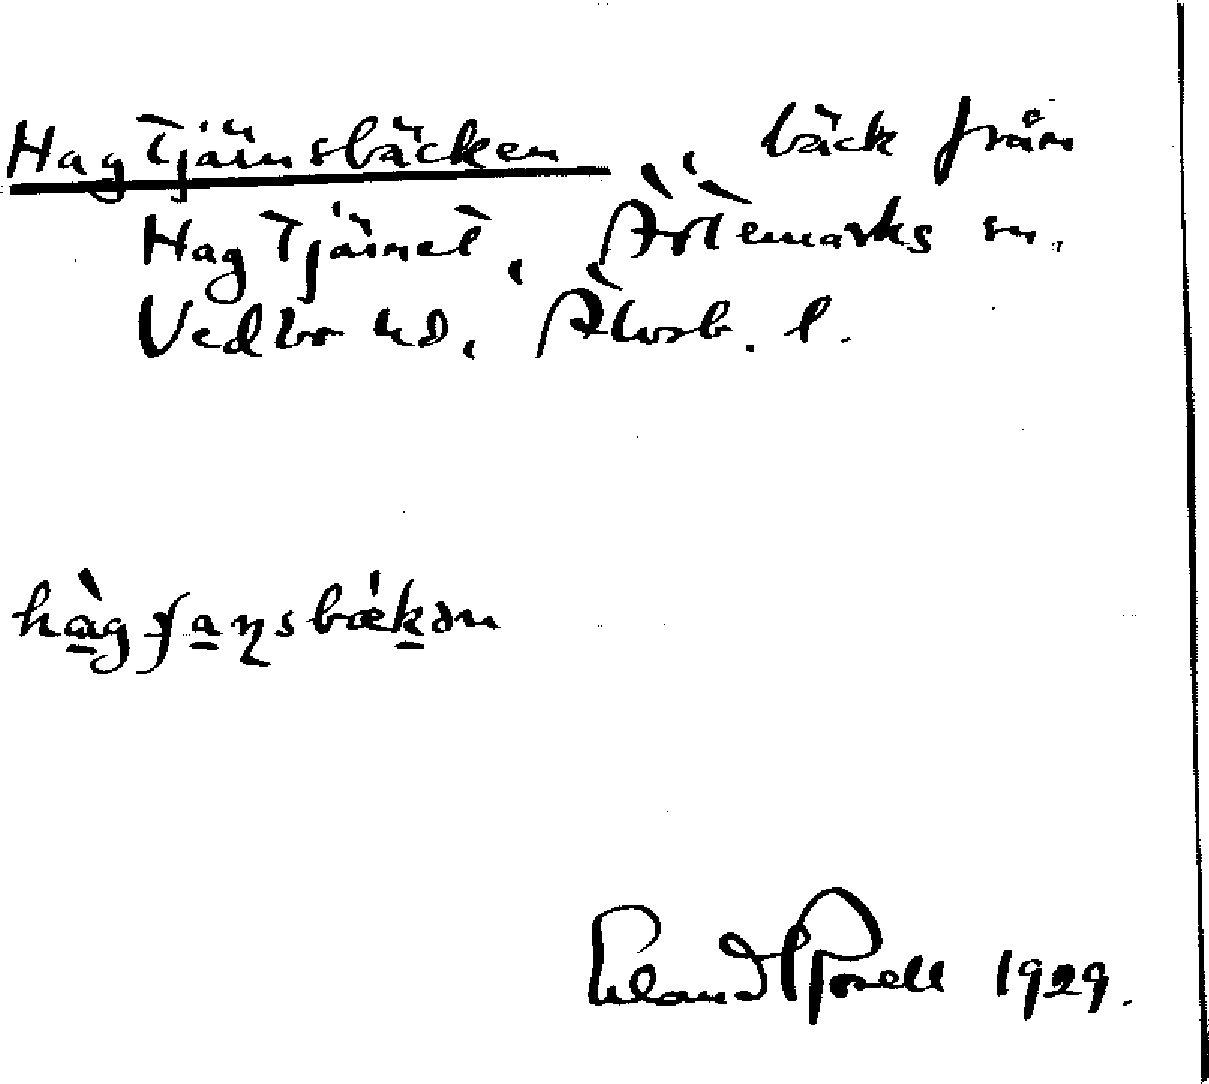 Hagtjärnsbäcken, bäck från
Hagtjärnet, Ärtemarks sn.
Vedbo hd, Älvsb. l.
hàgʃaɳsbǽkən
1929.